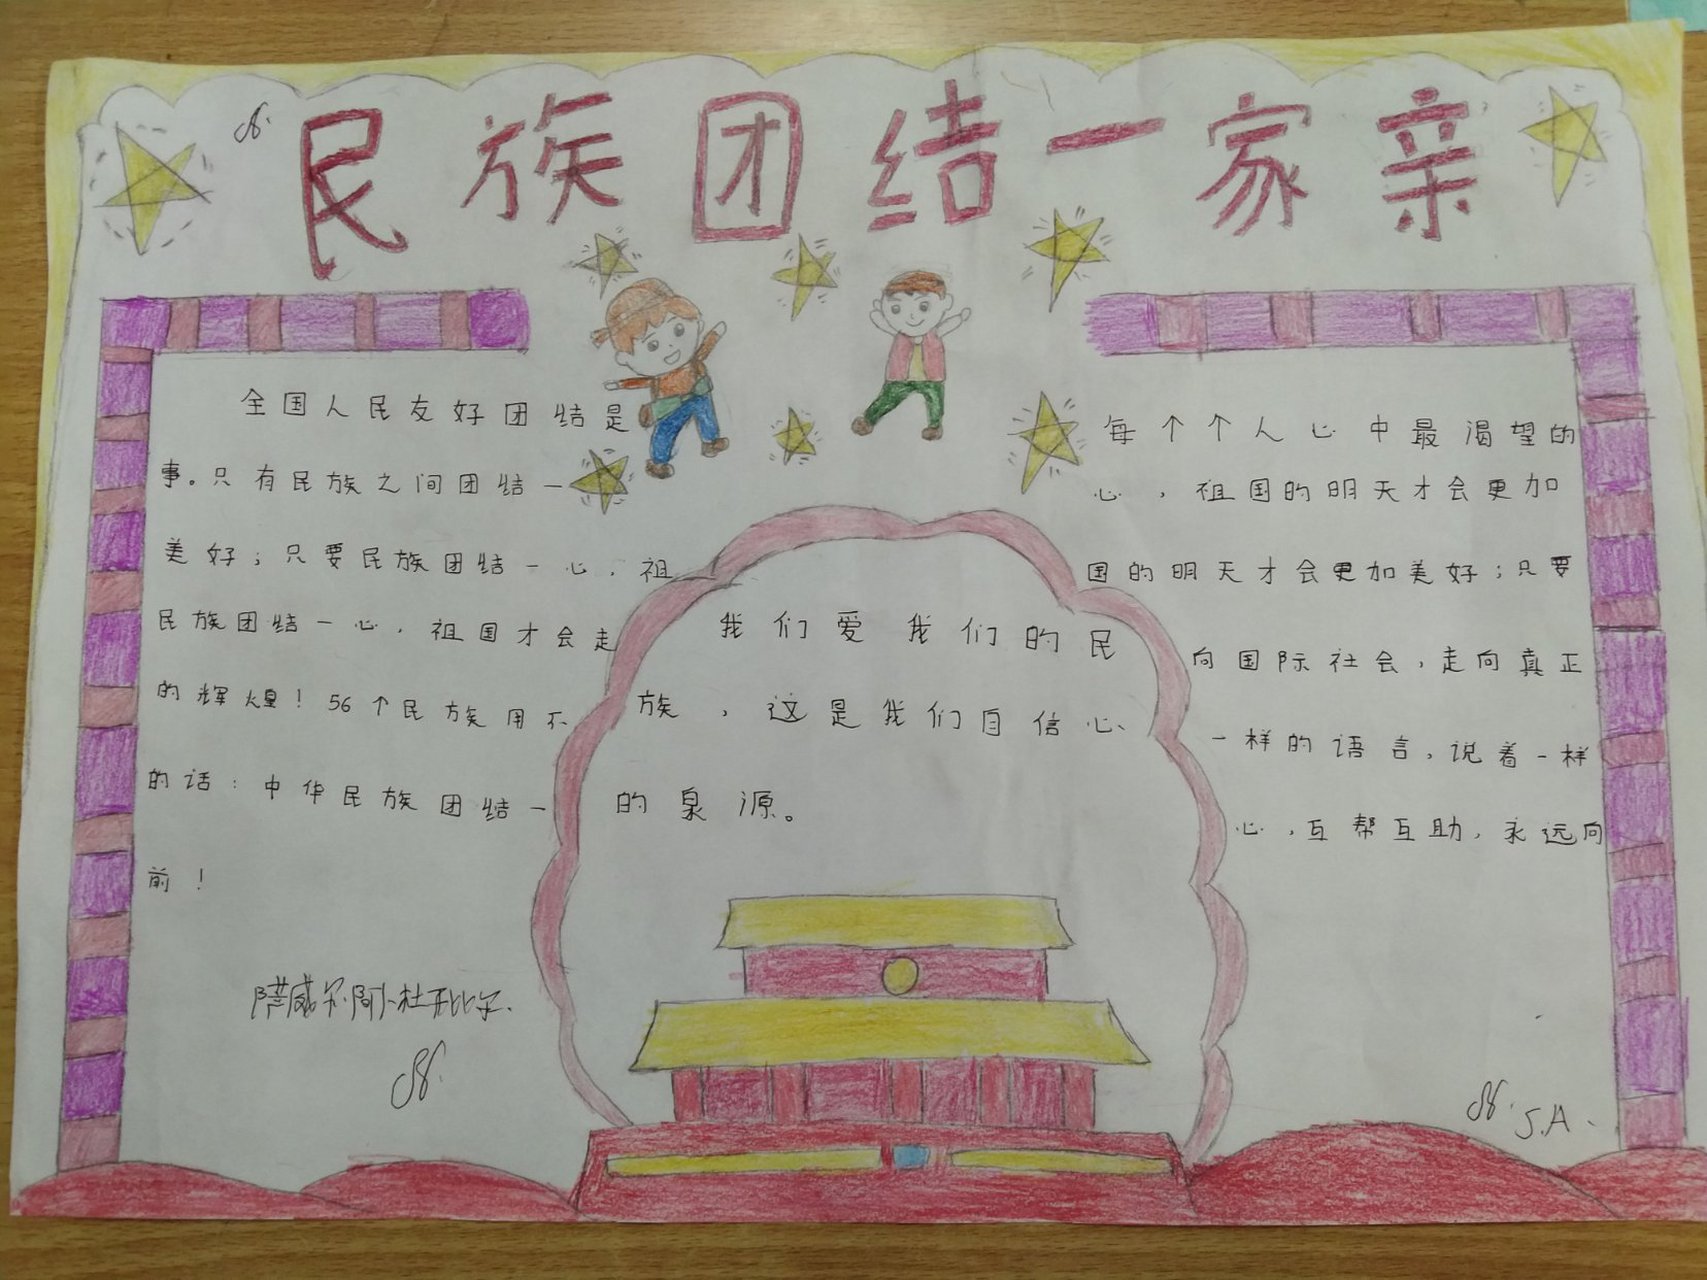 民族团结一家亲
全国人民友好团结是每个个人心中最渴望的
事。只有民族之间团结一心，祖国的明天才会更加
美好；只要民族团结一心，祖国的明天才会更加美好；只要
民族团结一心，祖国才会走向国际社会，走向真正
的辉煌！56个民族用不一样的语言，说着一样
的话：中华民族团结一心，互帮互助，永远向
前！
我们爱我们的民
族，这是我们自信心
的泉源。
S.A.